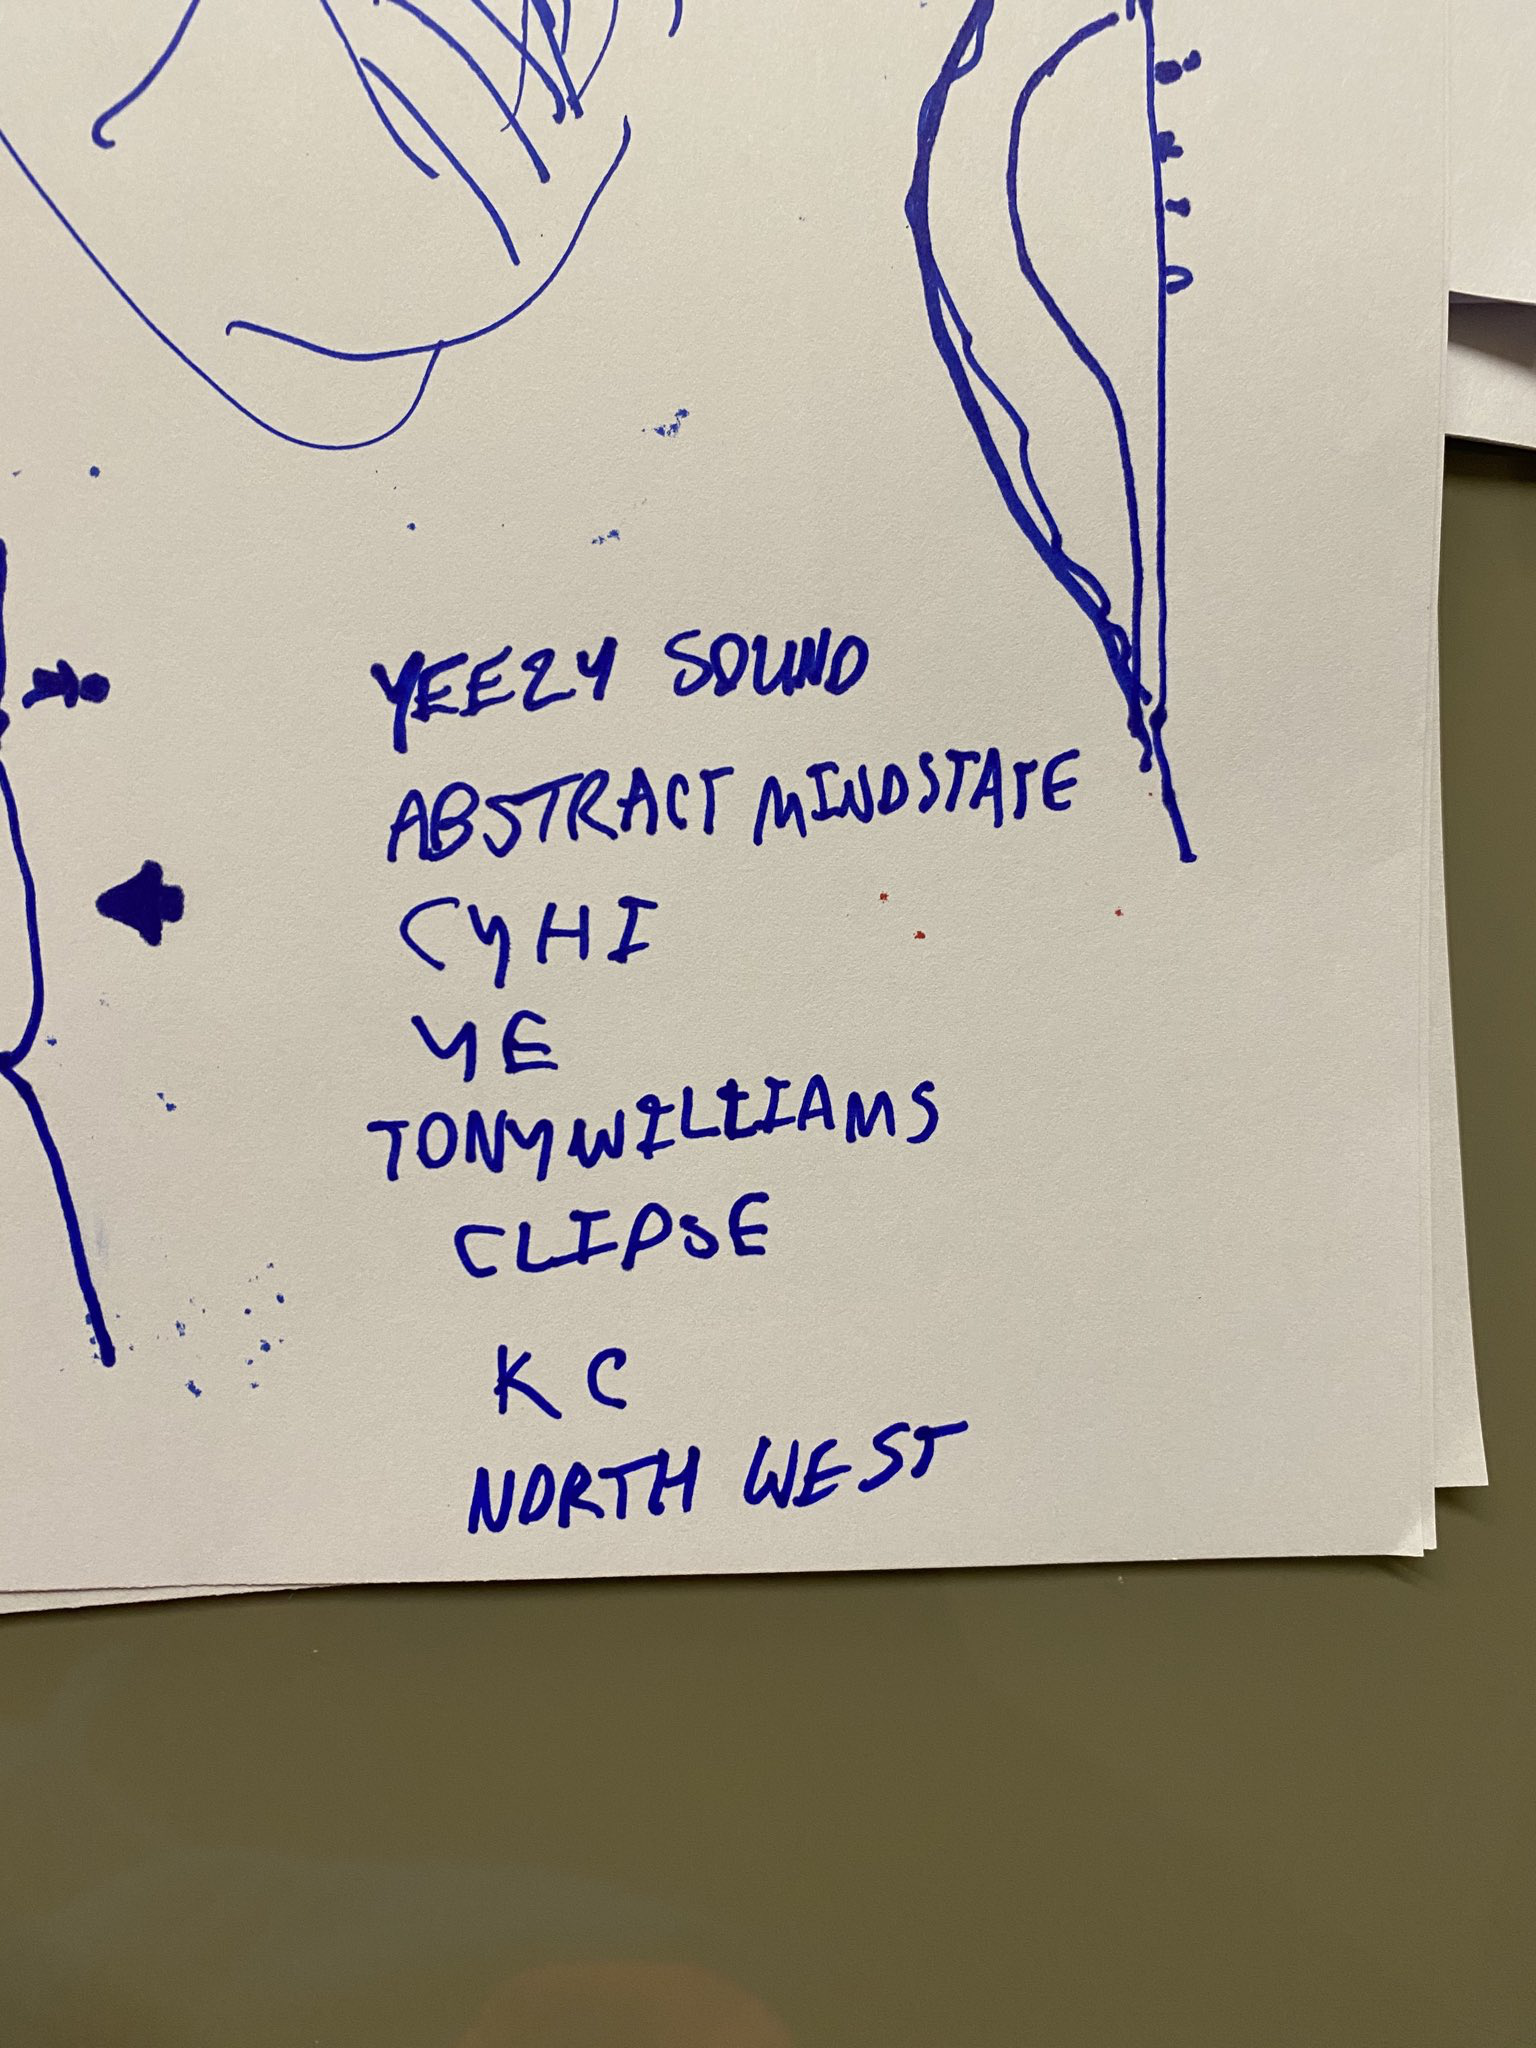 YEEZY SOUND
ABSTRACT MINDSTATE
CYHI
YE
TONYWILLIAMS
CLIPSE
KC
NORTH WEST